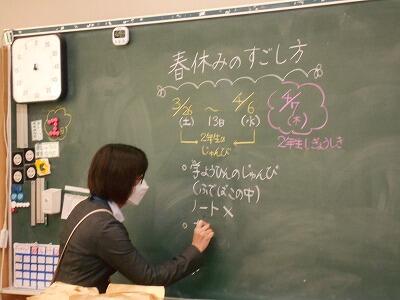 春休みのすごし方
3/26 〜 4/6
(土) 13日 (水)
4/7
(木)
2年生の
じゅんび
2年生しぎょうしき
○学ようひんのじゅんび
(ふでばこの中)
ノート×